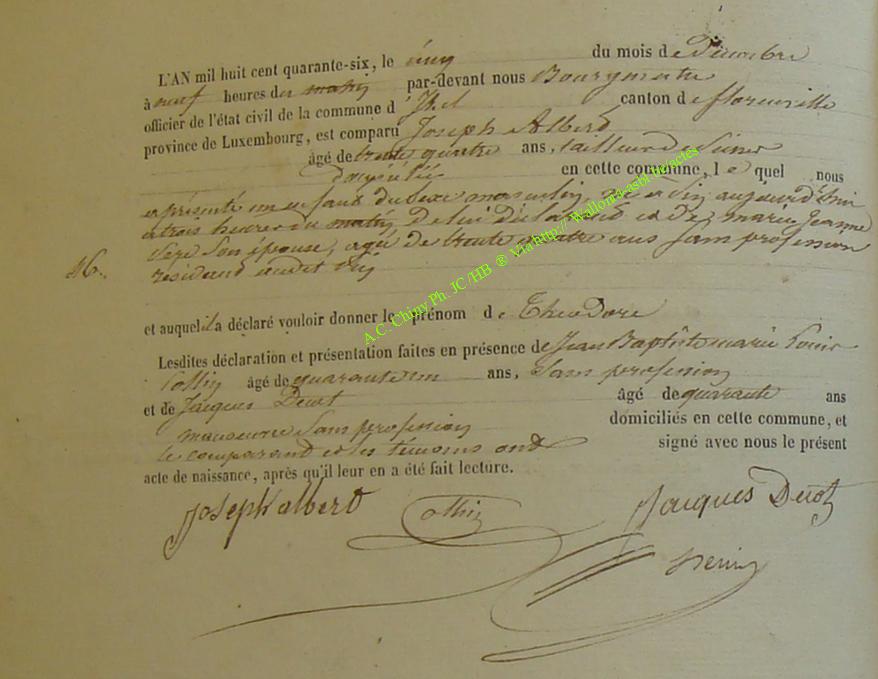 L'AN mil huit cent quarante-six, le cinq du mois de Décembre
à neuf heures du matin par-devant nous Bourgmestre
officier de l'état civil de la commune d' canton de florenville
province de Luxembourg, est comparu Joseph Albert
âgé de trente quatre ans, tailleur de
domicilié en cette commune, le quel nous
a présenté un enfant du sexe masculin, né aujourd'hui
a trois heures du matin, De lui Déclarant et de marie Jeanne
son épouse, agée de trente quatre ans sans profession
46. résidant audit
et auquel il a déclaré vouloir donner le prénom de Théodore
Lesdites déclaration et présentation faites en présence de Jean Baptiste marie Louis
Collin âgé de quarante un ans, sans profession
et de Jacques Devot âgé de quarante ans
manoeuvre sans profession domiciliés en cette commune, et
le comparant et les témoins ont signé avec nous le présent
acte de naissance, après qu'il leur en a été fait lecture.
Joseph albert Collin Jacques Devot
A.C. Chiny Ph. JC /HB ® Via http:// Wallonia-asbl.be/actes